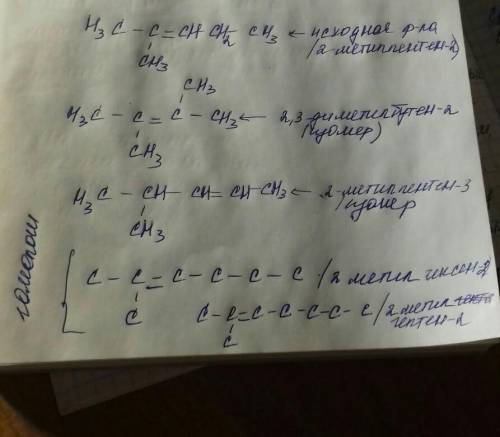 H₃C – C = CH CH₂ CH₃ ← исходная ф-ла
CH₃ /2-метилпентен-2)
CH₃
H₃C – C = C – CH₃ ← 2,3-диметилбутен-2
CH₃ (изомер)
H₃C – CH – CH = CH – CH₃ ← 2-метилпентен-3
CH₃ изомер
гомологи
C – C = C – C – C – C /2 метил гексен-2
C C – C = C – C – C – C – C /2 метил
C гептен-2